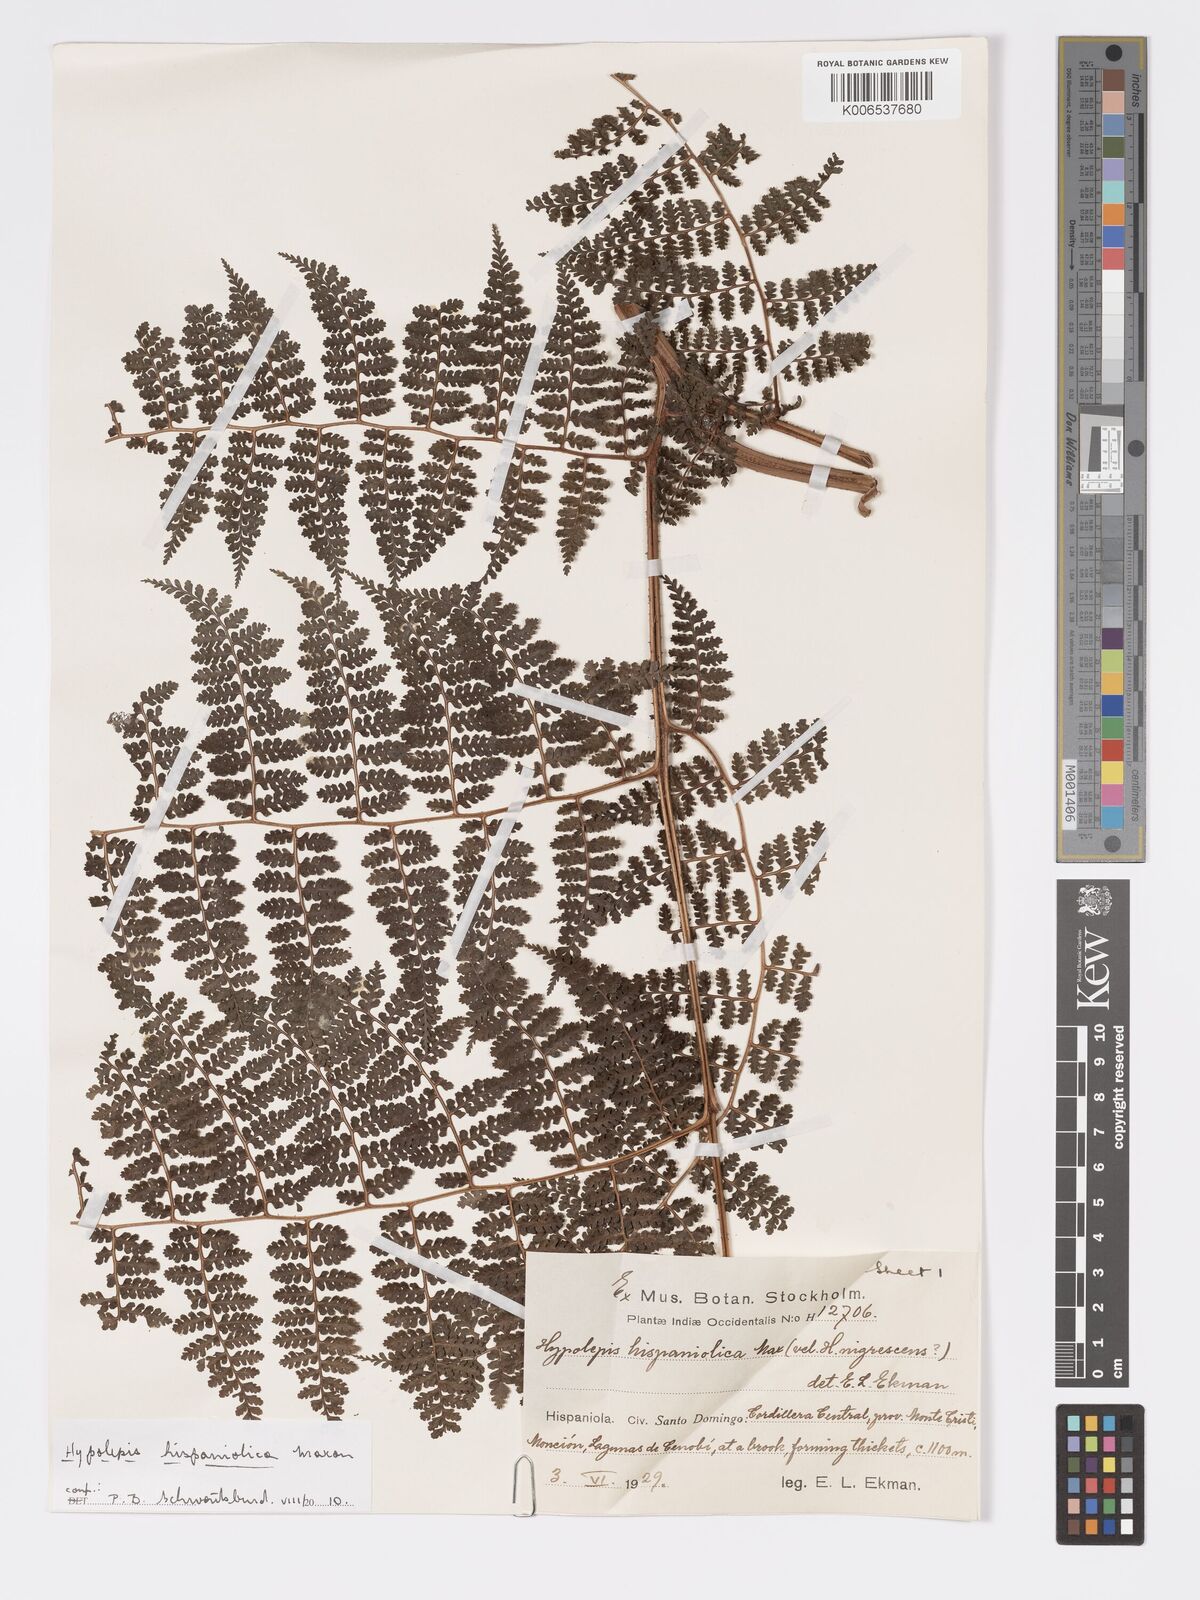 ROYAL BOTANIC GARDENS KEW
K006537680
inches
Density
Don Williams
M001406
centimeters
Royal Botanic Gardens
Kew
0 1 2 3 4 5 6 7 8 9 10
copyright reserved
Sheet 1
Ex Mus. Botan. Stockholm.
Plantæ Indiæ Occidentalis N:o H 12706.
Hypolepis hispaniolica Max (vel. H. nigrescens?)
det. E. L. Ekman
Hispaniola. Civ. Santo Domingo: Cordillera Central, prov. Monte Cristi,
Monción, Lagunas de Cenobí, at a brook, forming thickets, c. 1100 m.
3. VI. 1929.
leg. E. L. Ekman.
Hypolepis hispaniolica Maxon
conf.:
DET P. B. Schwartsburd. VIII/2010.